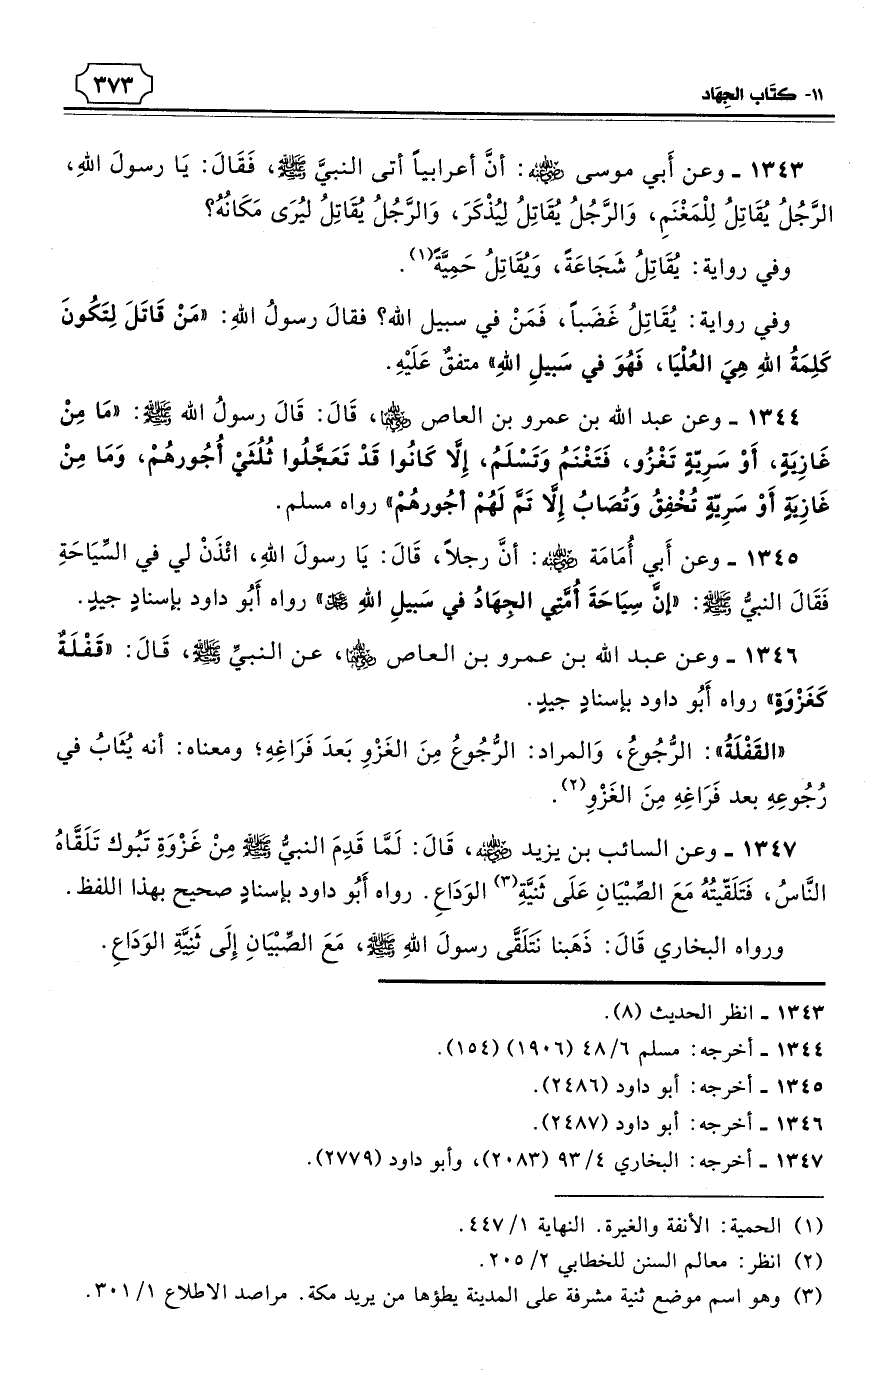 ١١- كتَاب الجِهَاد
٣٧٣
١٣٤٣ ـ وعن أَبي موسى رضي الله عنه: أنَّ أعرابياً أتى النبيَّ ﷺ، فَقَالَ: يَا رسولَ اللهِ،
الرَّجُلُ يُقَاتِلُ لِلْمَغْنَمِ، وَالرَّجُلُ يُقَاتِلُ لِيُذْكَرَ، وَالرَّجُلُ يُقَاتِلُ لِيُرَى مَكَانُهُ؟
وفي رواية: يُقَاتِلُ شَجَاعَةً، وَيُقَاتِلُ حَمِيَّةً(١).
وفي رواية: يُقَاتِلُ غَضَباً، فَمَنْ في سبيل الله؟ فقالَ رسولُ اللهِ: «مَنْ قَاتَلَ لِتَكُونَ
كَلِمَةُ اللهِ هِيَ العُلْيَا، فَهُوَ في سَبيلِ اللهِ» متفقٌ عَلَيْهِ.
١٣٤٤ ـ وعن عبد الله بن عمرو بن العاص رضي الله عنهما، قَالَ: قَالَ رسولُ الله ﷺ: «مَا مِنْ
غَازِيَةٍ، أَوْ سَرِيّةٍ تَغْزُو، فَتَغْنَمُ وَتَسْلَمُ، إِلَّا كَانُوا قَدْ تَعَجَّلُوا ثُلُثَيْ أُجُورهُمْ، وَمَا مِنْ
غَازِيَةٍ أَوْ سَرِيّةٍ تُخْفِقُ وَتُصَابُ إِلَّا تَمَّ لَهُمْ أجُورهُمْ» رواه مسلم.
١٣٤٥ ـ وعن أَبي أُمَامَة رضي الله عنه: أنَّ رجلاً، قَالَ: يَا رسولَ اللهِ، ائْذَنْ لي في السِّيَاحَةِ
فَقَالَ النبيُّ ﷺ: «إنَّ سِيَاحَةَ أُمَّتِي الجِهَادُ في سَبيلِ اللهِ ﷻ» رواه أَبُو داود بإسنادٍ جيدٍ.
١٣٤٦ ـ وعن عبد الله بن عمرو بن العاص رضي الله عنهما، عن النبيِّ ﷺ، قَالَ: «قَفْلَةٌ
كَغَزْوَةٍ» رواه أَبُو داود بإسنادٍ جيدٍ.
«القَفْلَةُ»: الرُّجُوعُ، وَالمراد: الرُّجُوعُ مِنَ الغَزْوِ بَعدَ فَرَاغِهِ؛ ومعناه: أنه يُثَابُ في
رُجُوعِهِ بعد فَرَاغِهِ مِنَ الغَزْوِ(٢).
١٣٤٧ ـ وعن السائب بن يزيد رضي الله عنه، قَالَ: لَمَّا قَدِمَ النبيُّ ﷺ مِنْ غَزْوَةِ تَبُوك تَلَقَّاهُ
النَّاسُ، فَتَلَقّيتُهُ مَعَ الصِّبْيَانِ عَلَى ثَنيَّةِ(٣) الوَدَاعِ. رواه أَبُو داود بإسنادٍ صحيح بهذا اللفظ.
ورواه البخاري قَالَ: ذَهَبنا نَتَلَقَّى رسولَ اللهِ ﷺ، مَعَ الصِّبْيَانِ إِلَى ثَنِيَّةِ الوَدَاعِ.
١٣٤٣ ـ انظر الحديث (٨).
١٣٤٤ ـ أخرجه: مسلم ٤٨/٦ (١٩٠٦) (١٥٤).
١٣٤٥ ـ أخرجه: أبو داود (٢٤٨٦).
١٣٤٦ ـ أخرجه: أبو داود (٢٤٨٧).
١٣٤٧ ـ أخرجه: البخاري ٩٣/٤ (٢٠٨٣)، وأبو داود (٢٧٧٩).
(١) الحمية: الأنفة والغيرة. النهاية ٤٤٧/١.
(٢) انظر: معالم السنن للخطابي ٢٠٥/٢.
(٣) وهو اسم موضع ثنية مشرفة على المدينة يطؤها من يريد مكة. مراصد الاطلاع ٣٠١/١.